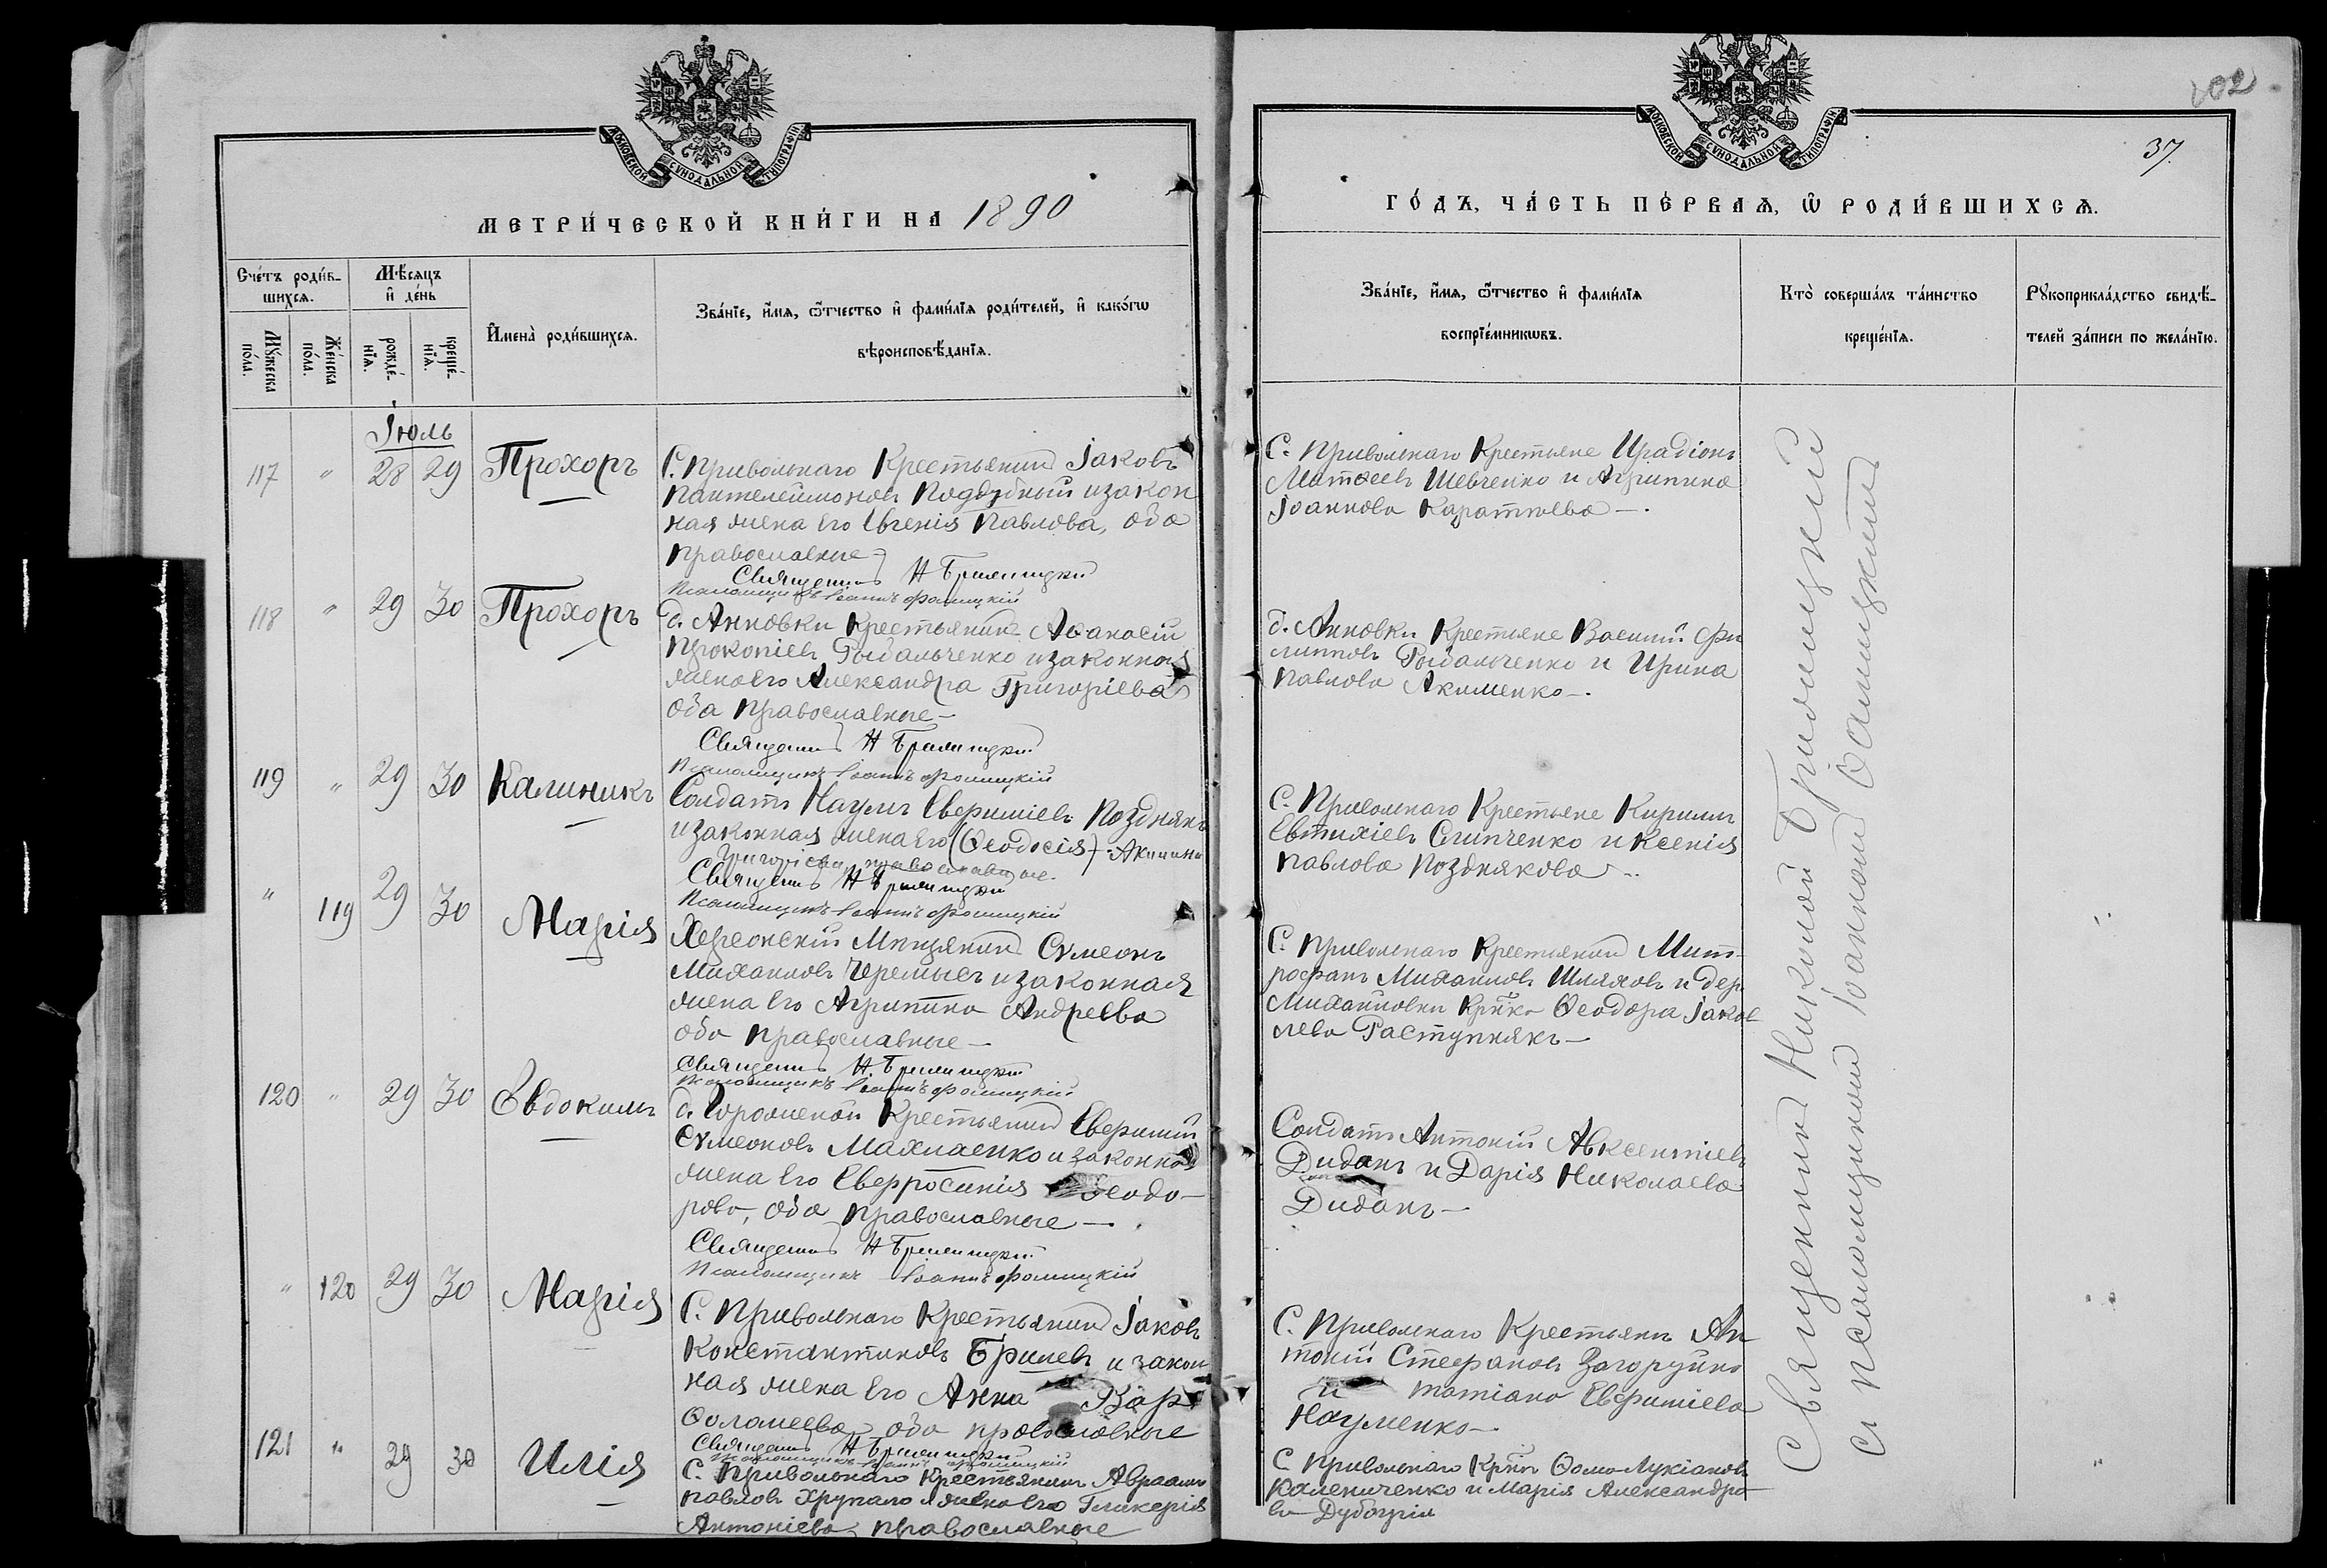 МОСКОВСКОЙ СУНОДАЛЬНОЙ ТИПОГРАФІИ
МЕТРИ́ЧЕСКОЙ КНИ́ГИ НА 1890
Сче́тъ роди́в-
шихсѧ.
Мꙋ́жеска
по́ла.
Же́нска
по́ла.
Мѣ́сѧцъ
и҆ де́нь
рожде́-
нїѧ.
креще́-
нїѧ.
И҆мена̀ роди́вшихсѧ.
Зва́нїе, и҆́мѧ, ѻ҆́тчество и҆ фами́лїѧ роди́телей, и҆ како́гѡ
вѣроисповѣ́данїѧ.
Іюль
117 " 28 29 Прохоръ
С. Привольнаго Крестьянинъ Іаковъ
Пантелеимоновъ Поддубный и закон
ная жена его Евгенія Павлова, оба
православные
Священникъ Н Брилицкій
Псаломщикъ Іоаннъ Фомицкій
118 " 29 30 Прохоръ
д. Анновки Крестьянинъ Аѳанасій
Прокопіевъ Рыбальченко и законная
жена его Александра Григоріева
оба православные —
Священникъ Н Брилицкій
Псаломщикъ Іоаннъ Фомицкій
119 " 29 30 Калиникъ
Солдатъ Наумъ Евфиміевъ Позднякъ
и законная жена его (Ѳеодосія) Акилина
Григоріева, православные.
Священникъ Н Брилицкій
Псаломщикъ Іоаннъ Фомицкій
" 119 29 30 Марія
Херсонскій Мѣщанинъ Сѵмеонъ
Михаиловъ Черемысъ и законная
жена его Агрипина Андреева
оба православные —
Священникъ Н. Брилицкій
Псаломщикъ Іоаннъ Фомицкій
120 " 29 30 Евдокимъ
Крестьянинъ Евфимій
Сѵмеоновъ Махлаенко и законная
жена его Евфросинія Ѳеодо-
рова, оба православные —.
Священникъ Н Брилицкій
Псаломщикъ Іоаннъ Фомицкій
" 120 29 30 Марія
С. Привольнаго Крестьянинъ Іаковъ
Константиновъ Брилевъ и закон
ная жена его Анна Вар-
ѳоломеева, оба православные
Священникъ Н Брилицкій
Псаломщикъ Іоаннъ Фомицкій
121 " 29 30 Илія
С. Привольнаго Крестьянинъ Авраамъ
Павловъ Хрупало и жена его Гликерія
Антоніева, православные
МОСКОВСКОЙ СУНОДАЛЬНОЙ ТИПОГРАФІИ
102
37
ГО́ДЪ, ЧА́СТЬ ПЕ́РВАѦ, Ѡ҆ РОДИ́ВШИХСѦ.
Зва́нїе, и҆́мѧ, ѻ҆́тчество и҆ фами́лїѧ
воспрїе́мникѡвъ.
Кто̀ соверша́лъ та́инство
креще́нїѧ.
Рꙋкоприкла́дство свидѣ́-
телей за́писи по жела́нїю.
С. Привольнаго Крестьяне Ирадіонъ
Матѳеевъ Шевченко и Агрипина
Іоаннова Каратаева —.
д. Анновки Крестьяне Василій Фи
липповъ Рыбальченко и Ирина
Павлова Акименко —.
С. Привольнаго Крестьяне Кириллъ
Евтихіевъ Слипченко и Ксенія
Павлова Позднякова —.
С. Привольнаго Крестьянинъ Мит-
рофанъ Михаиловъ Шляховъ и дер.
Михайловки Кр̃нка Ѳеодора Іаков-
лева Раступнякъ —
Солдатъ Антоній Авксентіевъ
Диданъ и Дарія Николаева
Диданъ —
С. Привольнаго Крестьяне Ан
тоній Стефановъ Загоруйко
и Татіана Евфиміева
Науменко —
С. Привольнаго Кр̃нъ Ѳома Лукіановъ
Калениченко и Марія Александро-
ва
Священникъ Николай Брилицкій
съ псаломщикомъ Іоанномъ Фомицкимъ